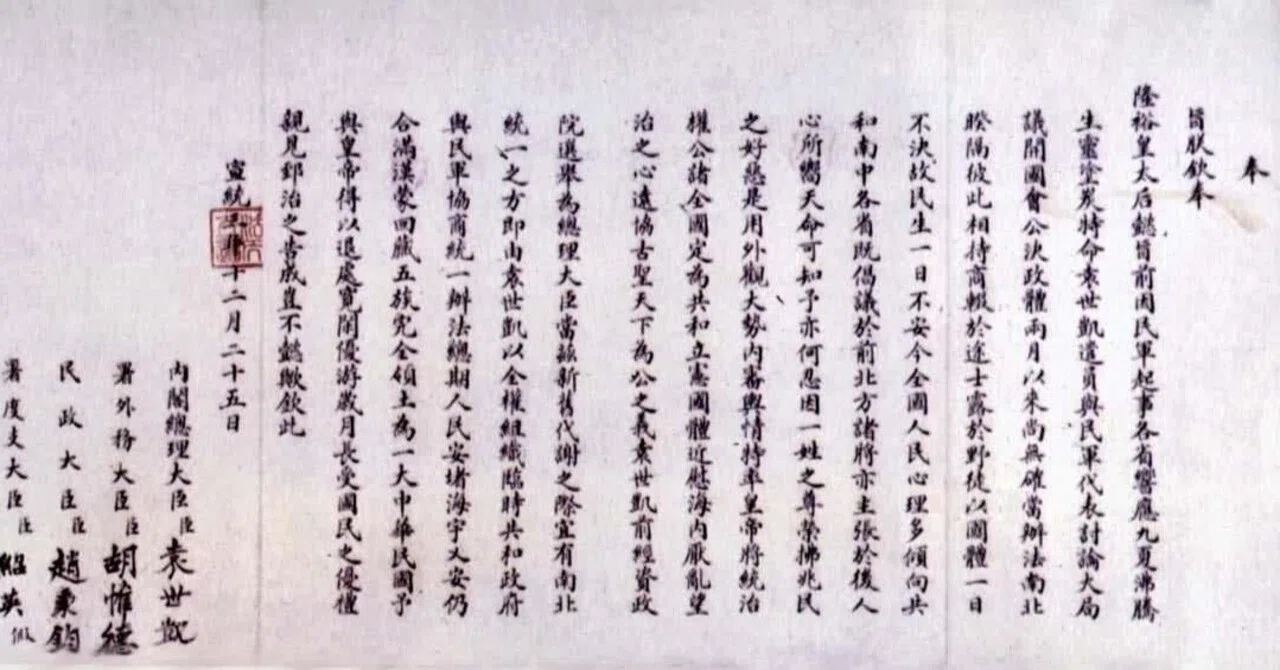 奉
旨朕欽奉
隆裕皇太后懿旨前因民軍起事各省響應九夏沸騰
生靈塗炭特命袁世凱遣員與民軍代表討論大局
議開國會公決政體兩月以來尚無確當辦法南北
暌隔彼此相持商輟於途士露於野徒以國體一日
不決故民生一日不安今全國人民心理多傾向共
和南中各省既倡議於前北方諸將亦主張於後人
心所嚮天命可知予亦何忍因一姓之尊榮拂兆民
之好惡是用外觀大勢內審輿情特率皇帝將統治
權公諸全國定為共和立憲國體近慰海內厭亂望
治之心遠協古聖天下為公之義袁世凱前經資政
院選舉為總理大臣當茲新舊代謝之際宜有南北
統一之方即由袁世凱以全權組織臨時共和政府
與民軍協商統一辦法總期人民安堵海宇乂安仍
合滿漢蒙回藏五族完全領土為一大中華民國予
與皇帝得以退處寬閒優游歲月長受國民之優禮
親見郅治之告成豈不懿歟欽此
宣統三年十二月二十五日
內閣總理大臣臣袁世凱
署外務大臣臣胡惟德
民政大臣臣趙秉鈞
署度支大臣臣紹英假